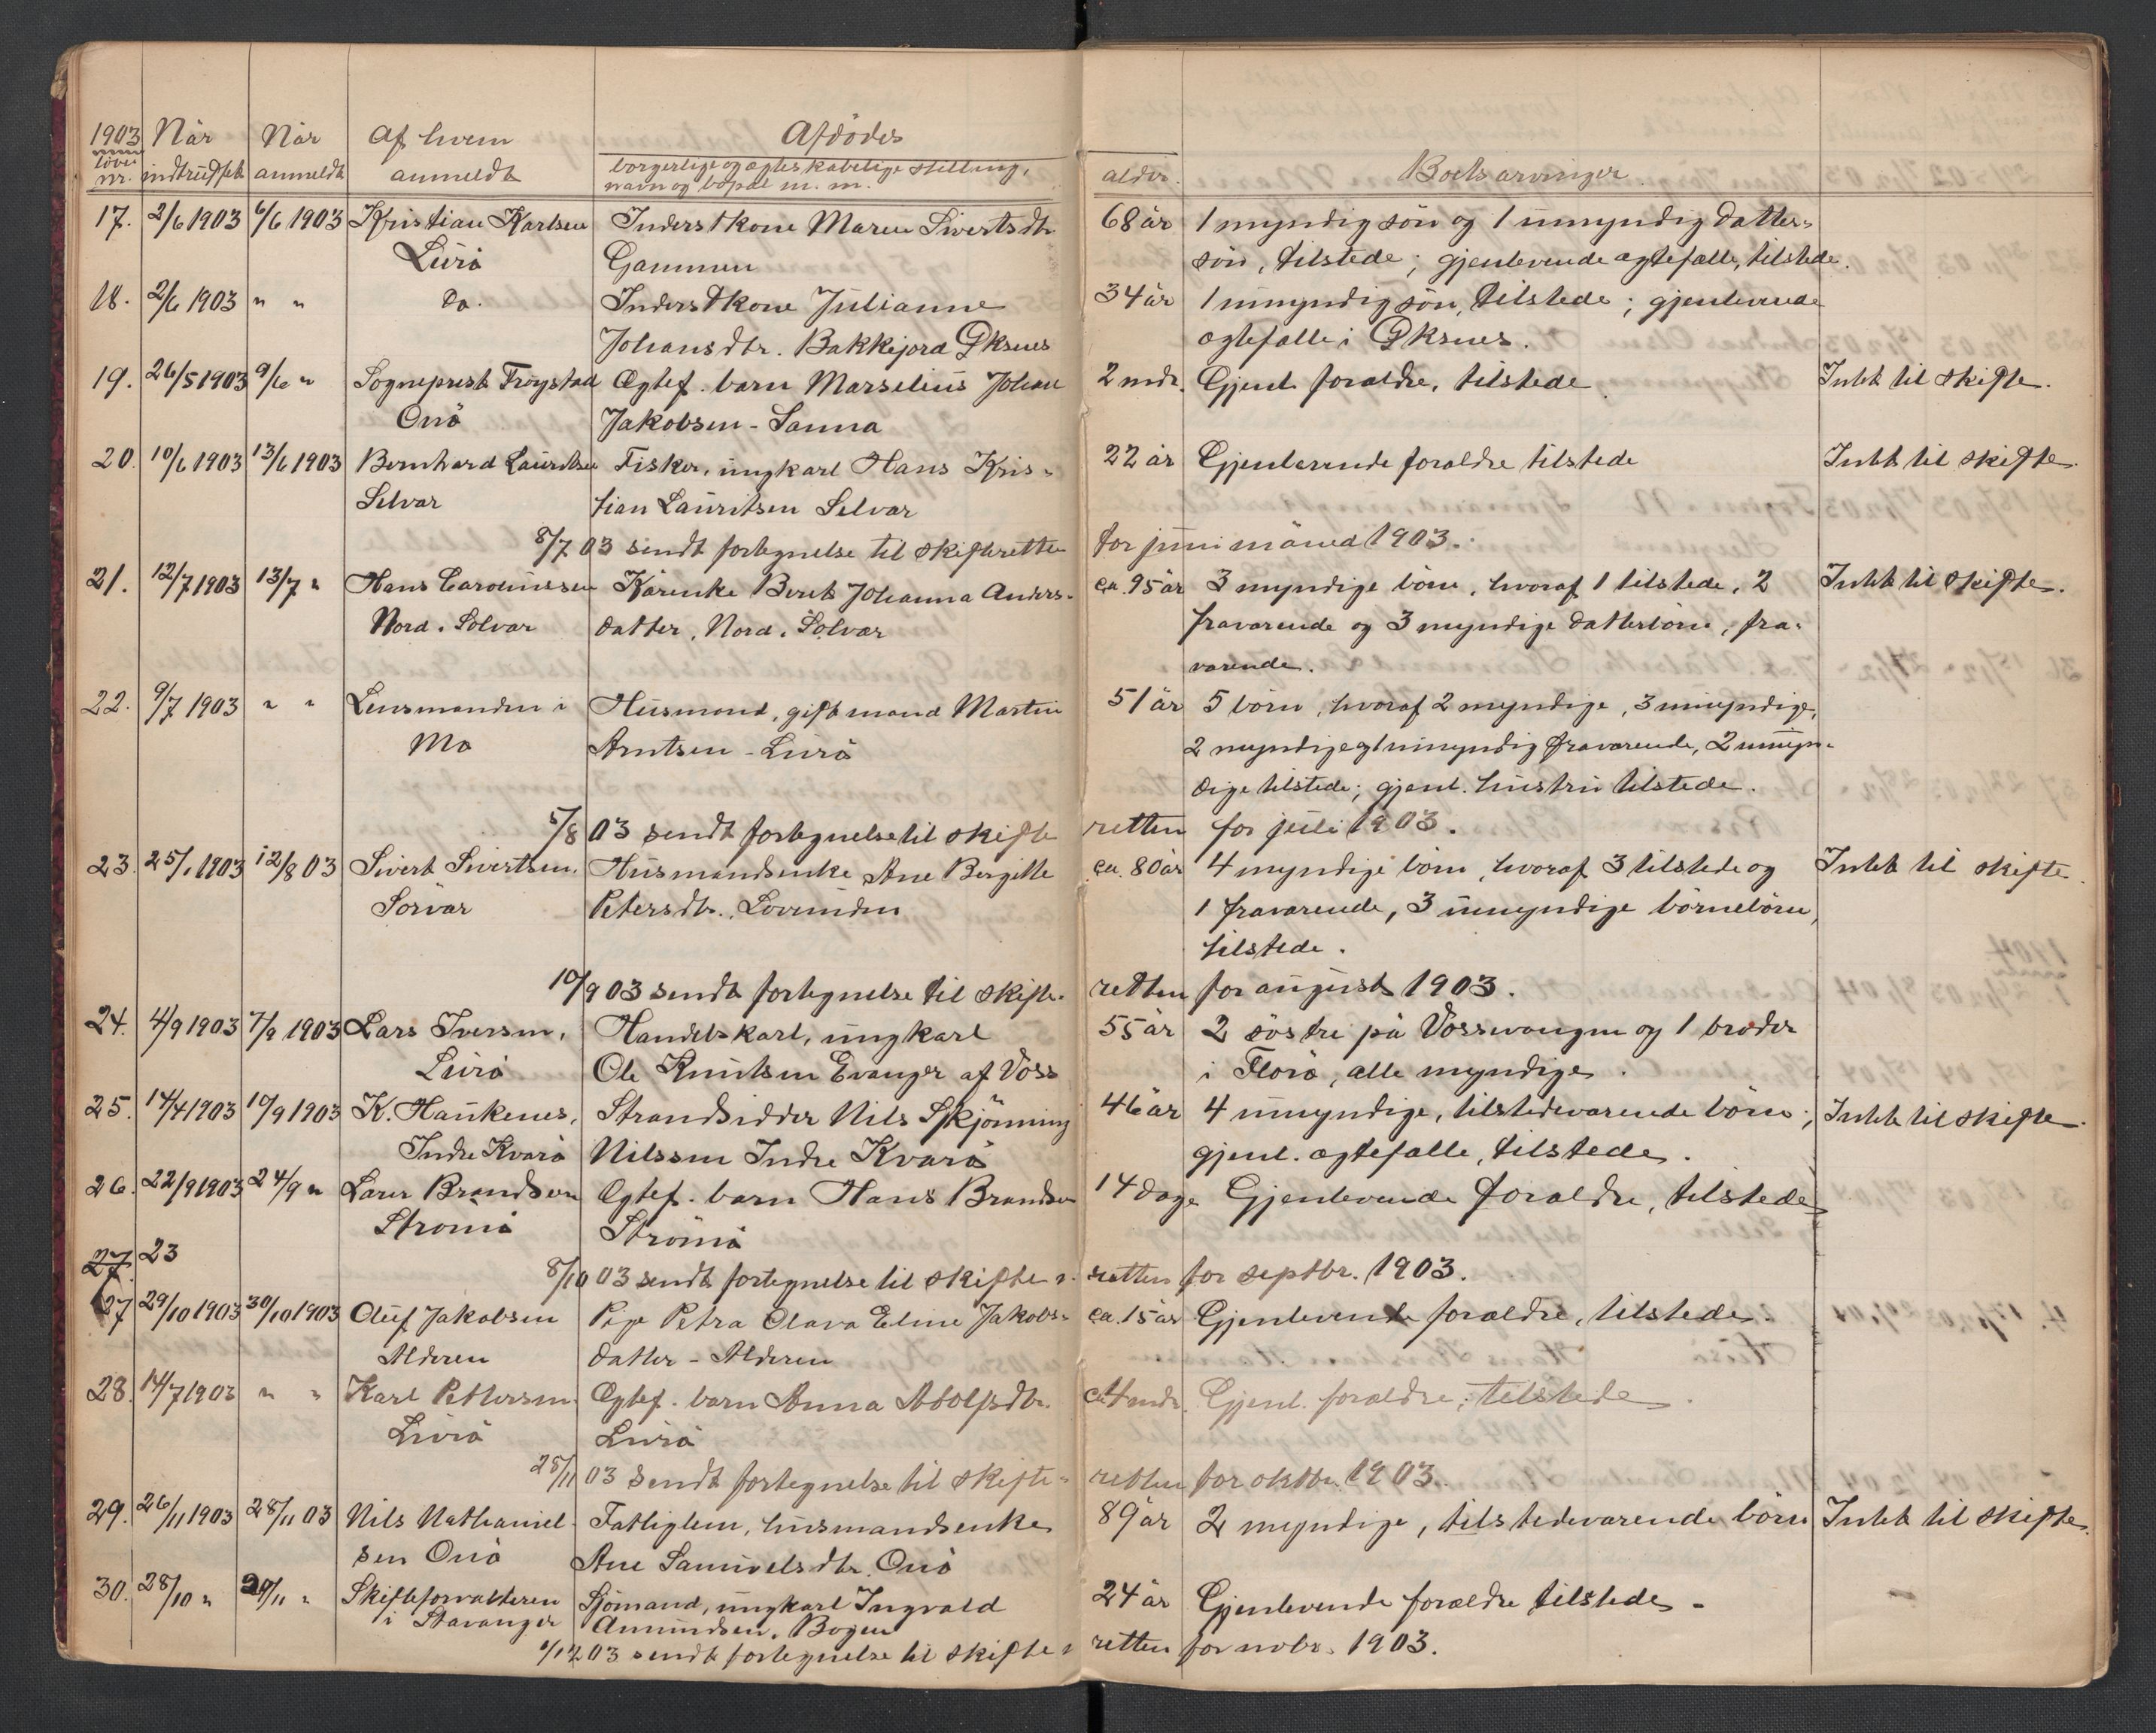 1903 Når Når Af hvem Afdödes
löbenr. indtruffet anmeldt anmeldt borgerlige og ægteskabelige stilling, navn og bopæl m. m. alder. Boets arvinger
17. 2/6 1903 6/6 1903 Kristian Karlsen Inderstkone Maren Sivertsdtr. 68 år 1 myndig sön og 1 umyndig datter-
Lurö Gammen sön, tilstede; gjenlevende ægtefælle, tilstede.
18. 2/6 1903 " " Do. Inderstkone Julianne 34 år 1 umyndig sön, tilstede; gjenlevende
Johansdtr. Bakkejord Øksnes ægtefælle i Øksnes.
19. 26/5 1903 9/6 " Sogneprest Fröystad Ægtef. barn Marselius Johan 2 mdr. Gjenl. forældre, tilstede. Intet til skifte.
Onö Jakobsen - Sanna
20. 10/6 1903 13/6 1903 Bernhard Lauritsen Fisker, ungkarl Hans Kris- 22 år Gjenlevende forældre tilstede Intet til skifte.
Selvær tian Lauritsen Selvær
8/7 03 sendt fortegnelse til skifteretten for juni måned 1903.
21. 12/7 1903 13/7 " Hans Carolinussen Kårenke Beret Johanna Anders- ca. 95 år 3 myndige börn, hvoraf 1 tilstede, 2 Intet til skifte.
Nord. Solvær datter, Nord. Solvær fraværende og 3 myndige datterbörn, fra-
værende.
22. 9/7 1903 " " Lensmanden i Husmand, gift mand Martin 51 år 5 börn, hvoraf 2 myndige, 3 umyndige,
Mo Arntsen - Lurö 2 myndige og 1 umyndig fraværende, 2 umyn-
dige tilstede; gjenl. hustru tilstede.
5/8 03 sendt fortegnelse til skifteretten for juli 1903.
23. 25/1 1903 12/8 03 Sivert Sivertsen, Husmandsenke Ane Bergitte ca. 80 år 4 myndige börn, hvoraf 3 tilstede og Intet til skifte.
Sörvær Petersdtr. Lovunden 1 fraværende, 3 umyndige börnebörn,
tilstede.
10/9 03 sendt fortegnelse til skifte- retten for august 1903.
24. 4/9 1903 7/9 1903 Lars Iversen, Handelskarl, ungkarl 55 år 2 söstre på Vossevangen og 1 broder
Lurö Ole Knutsen Evanger af Voss i Florö, alle myndige.
25. 14/4 1903 10/9 1903 K. Haukenes, Strandsidder Nils Skjönning 46 år 4 umyndige, tilstedeværende börn; Intet til skifte.
Indre Kvarö Nilssen Indre Kvarö gjenl. ægtefælle, tilstede.
26. 22/9 1903 24/9 " Larer Brandsen Ægtef. barn Hans Brandsen 14 dage Gjenlevende forældre, tilstede
Strömö Strömö
27. 23
8/10 03 sendt fortegnelse til skifte- retten for septbr. 1903.
27 29/10 1903 30/10 1903 Oluf Jakobsen Pige Petra Olava Eline Jakobs- ca. 15 år Gjenlevende forældre, tilstede.
Alderen datter - Alderen
28. 14/7 1903 " " Karl Pettersen Ægtef. barn Anna Adolfsdtr. ca 4 mdr. Gjenl. forældre, tilstede.
Lurö Lurö
28/11 03 sendt fortegnelse til skifte- retten for oktbr. 1903.
29. 26/11 1903 28/11 03 Nils Nathaniel- Fattiglem, husmandsenke 89 år 2 myndige, tilstedeværende börn Intet til skifte.
sen Onö Ane Samuelsdtr. Onö
30. 28/10 " 30/11 " Skifteforvalteren Sjömand, ungkarl Ingvald 24 år Gjenlevende forældre tilstede -
i Stavanger Amundsen. Bogen
1/12 03 sendt fortegnelse til skifte- retten for novbr. 1903.